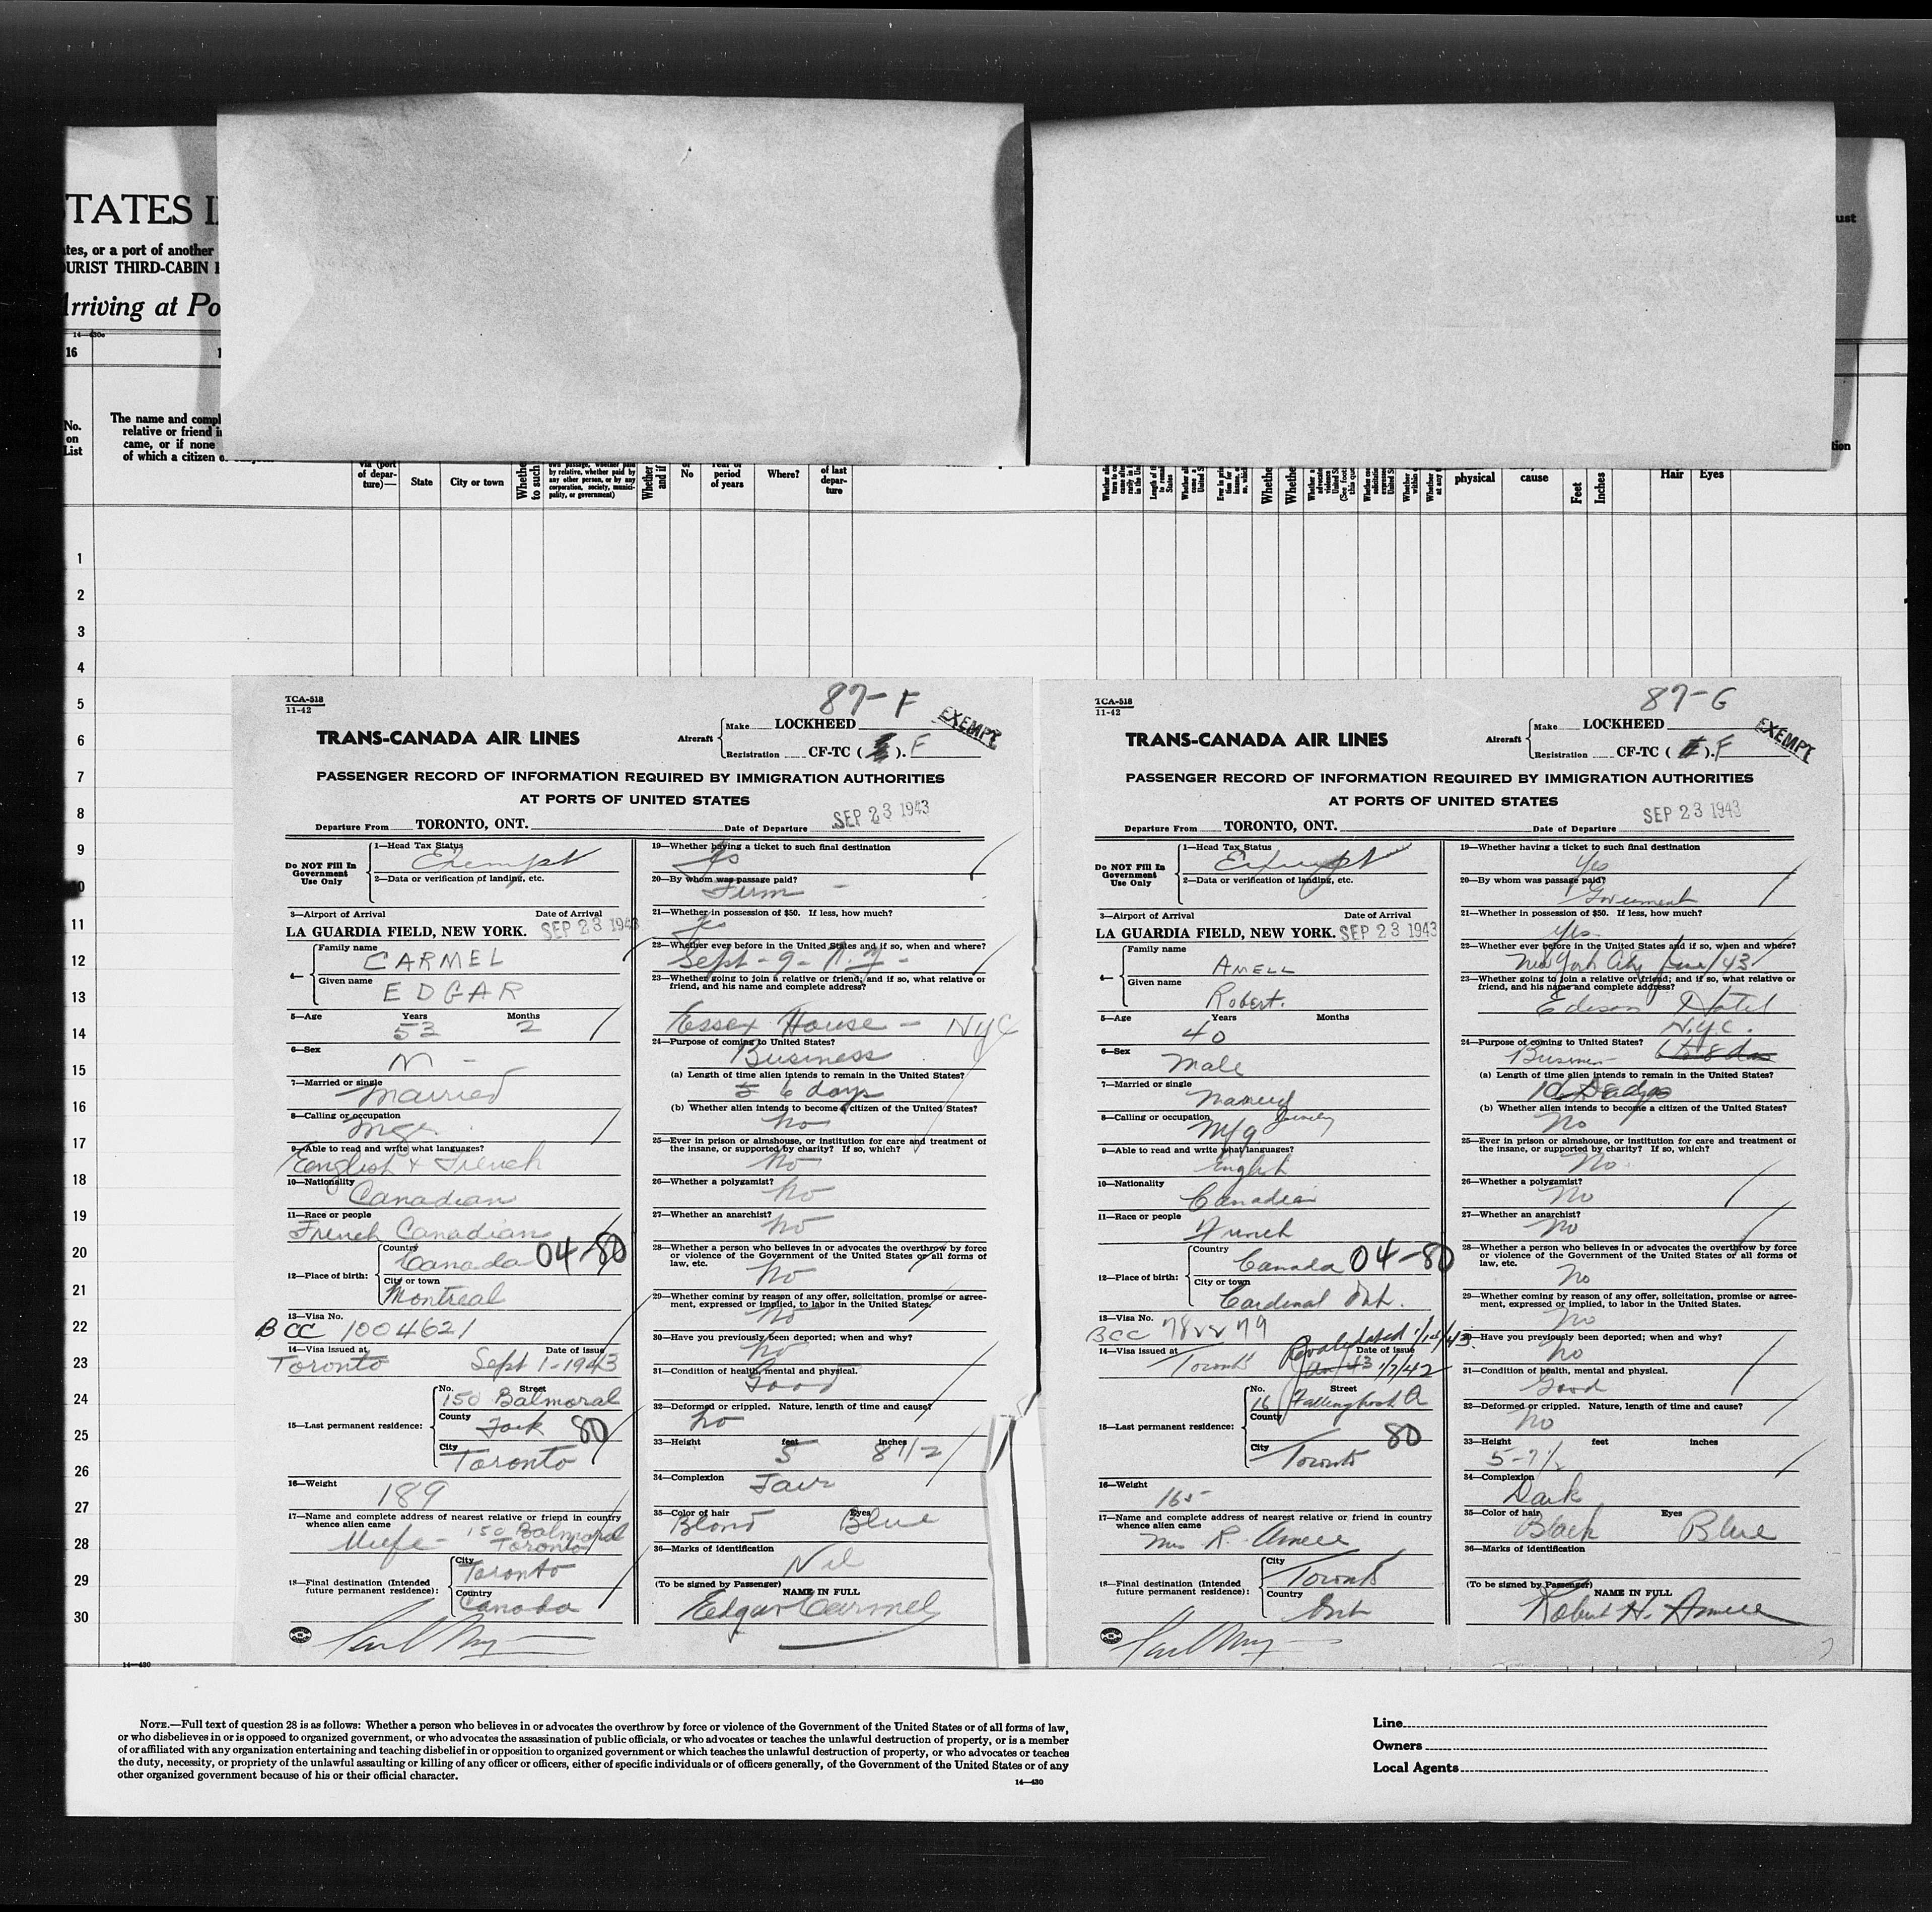 TATES I
ates, or a port of another
OURIST THIRD-CABIN
Arriving at Po
16
No.
on
List
The name and compl
relative or friend i
came, or if none
of which a citizen o
via (port
of depar-
ture)—
State
City or town
Whethe
to such
by relative, whether paid by
any other person, or by any
corporation, society, munici-
pality, or government)
Whether
and if
No
period
of years
Where?
of last
depar-
ture
physical
cause
Feet
Inches
Hair
Eyes
ust
tion
1
2
3
4
5
6
7
8
9
10
11
12
13
14
15
16
17
18
19
20
21
22
23
24
25
26
27
28
29
30
TCA-518
11-42
87-F
TRANS-CANADA AIR LINES
Aircraft
Make LOCKHEED
Registration CF-TC ( ). F
EXEMPT
PASSENGER RECORD OF INFORMATION REQUIRED BY IMMIGRATION AUTHORITIES
AT PORTS OF UNITED STATES
Departure From TORONTO, ONT. Date of Departure SEP 23 1943
Do NOT Fill In
Government
Use Only
1—Head Tax Status
Exempt
2—Data or verification of landing, etc.
3—Airport of Arrival Date of Arrival
LA GUARDIA FIELD, NEW YORK. SEP 23 1943
4— Family name
CARMEL
Given name
EDGAR
5—Age Years Months
53 2
6—Sex
M -
7—Married or single
Married
8—Calling or occupation
Mgr
9—Able to read and write what languages?
English + French
10—Nationality
Canadian
11—Race or people
French Canadian
12—Place of birth: Country
Canada 04-80
City or town
Montreal
13—Visa No.
BCC 1004621
14—Visa issued at Date of issue
Toronto Sept 1-1943
15—Last permanent residence: No. Street
150 Balmoral
County
York 80
City
Toronto
16—Weight
189
17—Name and complete address of nearest relative or friend in country
whence alien came
Wife - 150 Balmoral
Toronto
18—Final destination (Intended
future permanent residence):
City
Toronto
Country
Canada
19—Whether having a ticket to such final destination
Yes
20—By whom was passage paid?
Firm -
21—Whether in possession of $50. If less, how much?
Yes
22—Whether ever before in the United States and if so, when and where?
Sept - 9 - N.Y -
23—Whether going to join a relative or friend; and if so, what relative or
friend, and his name and complete address?
Essex House - NYC
24—Purpose of coming to United States?
Business
(a) Length of time alien intends to remain in the United States?
6 days
(b) Whether alien intends to become a citizen of the United States?
No
25—Ever in prison or almshouse, or institution for care and treatment of
the insane, or supported by charity? If so, which?
No
26—Whether a polygamist?
No
27—Whether an anarchist?
No
28—Whether a person who believes in or advocates the overthrow by force
or violence of the Government of the United States or all forms of
law, etc.
No
29—Whether coming by reason of any offer, solicitation, promise or agree-
ment, expressed or implied, to labor in the United States.
No
30—Have you previously been deported; when and why?
No
31—Condition of health, mental and physical.
Good
32—Deformed or crippled. Nature, length of time and cause?
No
33—Height feet inches
5 8 1/2
34—Complexion
Fair
35—Color of hair Eyes
Blond Blue
36—Marks of identification
Nil
(To be signed by Passenger)
NAME IN FULL
Edgar Carmel
TCA-518
11-42
87-G
TRANS-CANADA AIR LINES
Aircraft
Make LOCKHEED
Registration CF-TC ( ). F
EXEMPT
PASSENGER RECORD OF INFORMATION REQUIRED BY IMMIGRATION AUTHORITIES
AT PORTS OF UNITED STATES
Departure From TORONTO, ONT. Date of Departure SEP 23 1943
Do NOT Fill In
Government
Use Only
1—Head Tax Status
Exempt
2—Data or verification of landing, etc.
3—Airport of Arrival Date of Arrival
LA GUARDIA FIELD, NEW YORK. SEP 23 1943
4— Family name
AMELL
Given name
Robert.
5—Age Years Months
40
6—Sex
Male
7—Married or single
Married
8—Calling or occupation
Mfg Jewelry
9—Able to read and write what languages?
English
10—Nationality
Canadian
11—Race or people
French
12—Place of birth: Country
Canada 04-80
City or town
Cardinal Ont.
13—Visa No.
BCC
14—Visa issued at Date of issue
Toronto 1/7/42
15—Last permanent residence: No. Street
16
County
80
City
Toronto
16—Weight
165
17—Name and complete address of nearest relative or friend in country
whence alien came
Mrs R. Amell
18—Final destination (Intended
future permanent residence):
City
Toronto
Country
Ont
19—Whether having a ticket to such final destination
Yes
20—By whom was passage paid?
Goverment
21—Whether in possession of $50. If less, how much?
Yes
22—Whether ever before in the United States and if so, when and where?
New York City June/43
23—Whether going to join a relative or friend; and if so, what relative or
friend, and his name and complete address?
Edison Hotel
N.Y.C.
24—Purpose of coming to United States?
Business 6 to 8 das
(a) Length of time alien intends to remain in the United States?
10
(b) Whether alien intends to become a citizen of the United States?
No
25—Ever in prison or almshouse, or institution for care and treatment of
the insane, or supported by charity? If so, which?
No
26—Whether a polygamist?
No
27—Whether an anarchist?
No
28—Whether a person who believes in or advocates the overthrow by force
or violence of the Government of the United States or all forms of
law, etc.
No
29—Whether coming by reason of any offer, solicitation, promise or agree-
ment, expressed or implied, to labor in the United States.
No
30—Have you previously been deported; when and why?
No
31—Condition of health, mental and physical.
Good
32—Deformed or crippled. Nature, length of time and cause?
No
33—Height feet inches
5-7 1/2
34—Complexion
Dark
35—Color of hair Eyes
Black Blue
36—Marks of identification
(To be signed by Passenger)
NAME IN FULL
Robert H. Amell
14—430
NOTE.—Full text of question 28 is as follows: Whether a person who believes in or advocates the overthrow by force or violence of the Government of the United States or of all forms of law,
or who disbelieves in or is opposed to organized government, or who advocates the assassination of public officials, or who advocates or teaches the unlawful destruction of property, or is a member
of or affiliated with any organization entertaining and teaching disbelief in or opposition to organized government or which teaches the unlawful destruction of property, or who advocates or teaches
the duty, necessity, or propriety of the unlawful assaulting or killing of any officer or officers, either of specific individuals or of officers generally, of the Government of the United States or of any
other organized government because of his or their official character.
14—430
Line
Owners
Local Agents